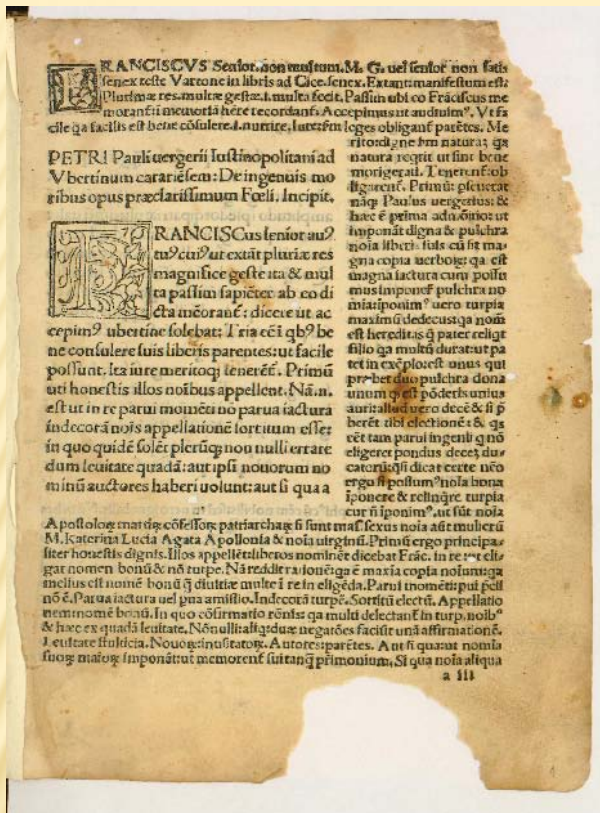 FRANCISCVS Senior. non multum. M. G. uel senior non satis
senex teste Varrone in libris ad Cice. senex. Extant: manifestum est:
Plurimæ res. multæ gestæ. i. multa fecit. Passim ubi co Frāciscus me
morant᷑: i memoriā here recordant᷑. Accepimus ut auditum⁹. Vt fa
cile qa facilis est bene cōsulere. i. nutrire. Interim leges obligant parētes. Me
PETRI Pauli uergerii Iustinopolitani ad
Vbertinum carariēsem: De ingenuis mo
ribus opus præclarissimum Fœli. Incipit.
FRANCISCus senior au⁹
tu⁹ cui⁹ ut extāt pluriæ res
magnifice geste ita & mul
ta passim sapiēter ab eo di
cta meōrant᷑: dicere ut ac
cepim⁹ ubertine solebat: Tria eē i qb⁹ be
ne consulere suis liberis parentes: ut facile
possunt. Ita iure meritoqȝ tenerēt᷑. Primū
uti honestis illos noībus appellent. Nā. n.
est ut in re parui momēti no parua iactura
indecorā nois appellationē sortitum esse:
in quo quidē solēt plerūqȝ non nulli errare
dum leuitate quadā: aut ipsi nouorum no
minū auctores haberi uolunt: aut si qua a
rito digne hm naturaȝ qa
natura reqrit ut sint bene
morigerati. Tenerent᷑: ob
ligarent᷑. Primū: pseuerat
nāqȝ Paulus uergerius: &
hæc ē prima admōnitio: ut
imponāt digna & pulchra
noīa liberis suis cū sit ma-
gna copia uerboꝝ: qa est
magna iactura cum possu
mus imponer᷑ pulchra no
mia: īponim⁹ uero turpia
maximū dedecus: qa nom̄
est hereditas q̄ pater reliqt
filio qa multū durat: ut pa
tet in exēplo: est unus qui
præbet duo pulchra dona
unum q̄ est pōderis unius
auri: aliud uero decē & si p̄
berēt tibi electionē: & qs
eēt tam parui ingenii q nō
eligeret pondus decē du-
catorū: qsi dicat certe nēo
ergo si possum⁹ noīa bona
īponere & relinqre turpia
cur n̄ iponim⁹. ut sūt noīa
Apostoloꝝ matriꝝ cōfessoꝝ patriarchaꝝ si sunt mas. sexus noīa aūt mulierū
M. Katerina Lucia Agata Apollonia & noīa uirginū. Primū ergo principa-
liter honestis dignis. Illos appellēt: liberos nominēt dicebat Frāc. in re: ut eli-
gat nomen bonū & nō turpe. Nā reddit rationē: qa ē maxīa copia noīum: qa
melius est nomē bonū q̄ diuitiæ multe i re in eligēda. Parui momēti: pui pēsi
nō ē. Parua iactura uel pua amissio. Indecorā turpē. Sortitū electū. Appellatio
nem: nomē bonū. In quo cōfirmatio rōnis: qa multi delectant᷑ in turp. noib⁹
& hæc ex quadā leuitate. Nōnulli: aliq: duæ negatōes faciūt unā affirmationē.
Leuitate stulticia. Nouoꝝ: inusitatoꝝ. Autores: parētes. Aut si qua: ut nomīa
suoꝝ maioꝝ imponāt: ut memorent᷑ sui tanqȝ primonium. Si qua noīa aliqua
a III